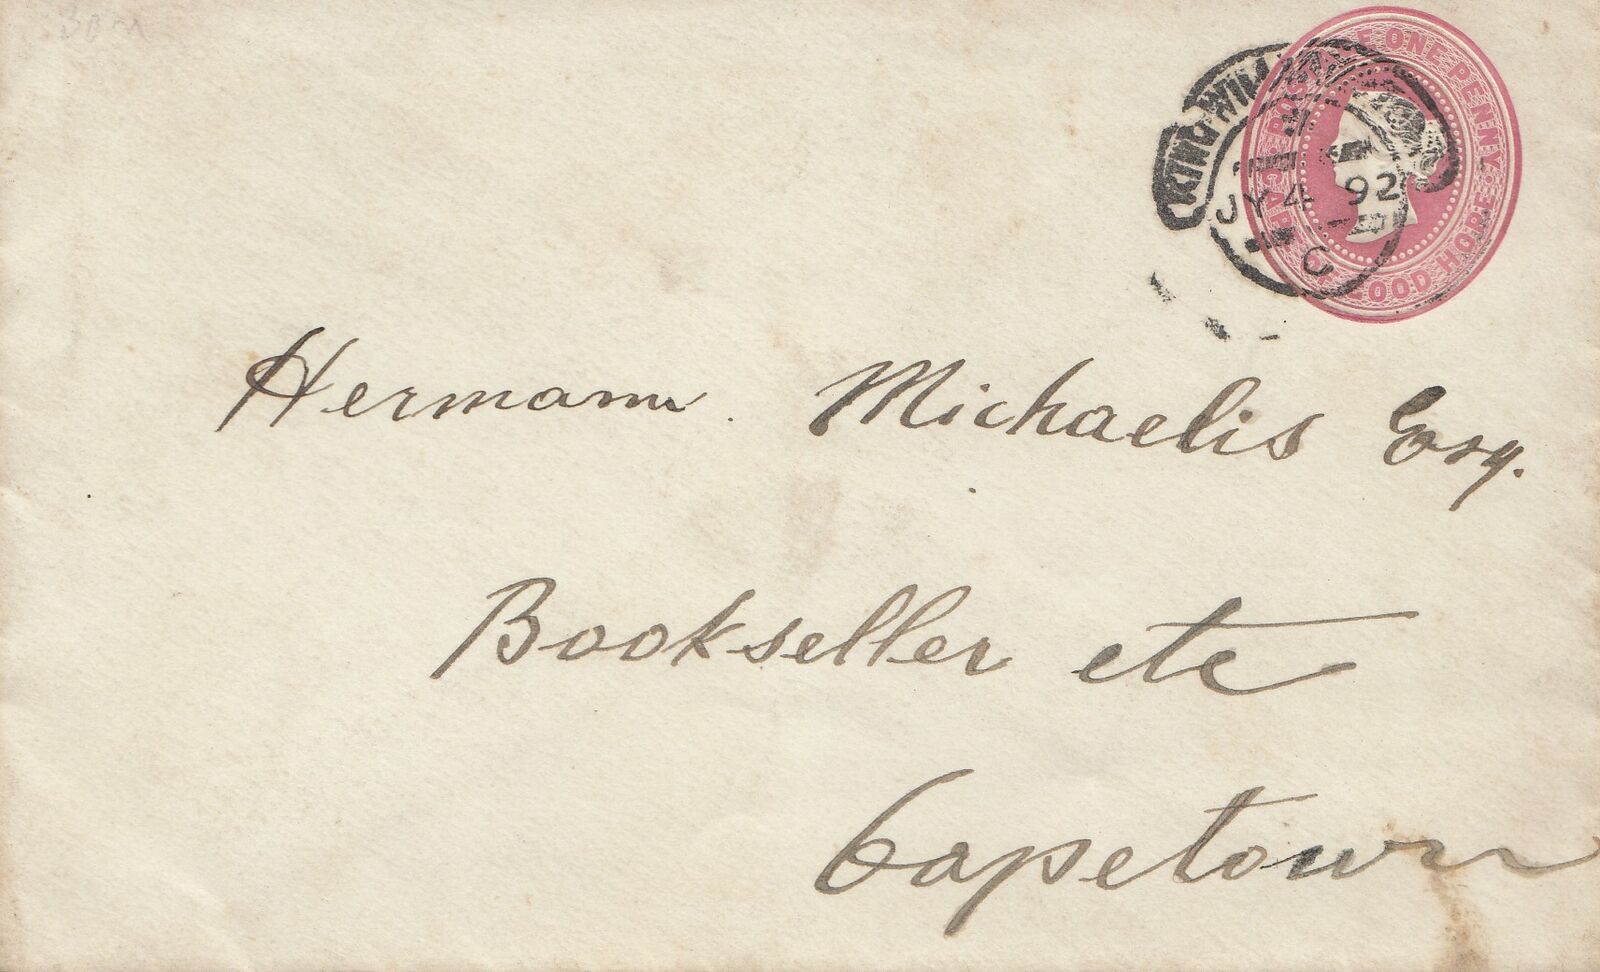 POSTAGE ONE PENNY
CAPE OF GOOD HOPE
KING WILL
JY 4 92
C
Hermann Michaelis Esq.
Bookseller etc
Capetown